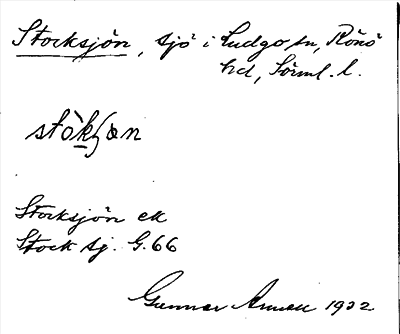 Stocksjön, sjö i Ludgo sn, Rönö
hd, Sörml. l.
stò̀kʃɵn
Stocksjön ek
Stock sj. G. 66
Gunnar 1932